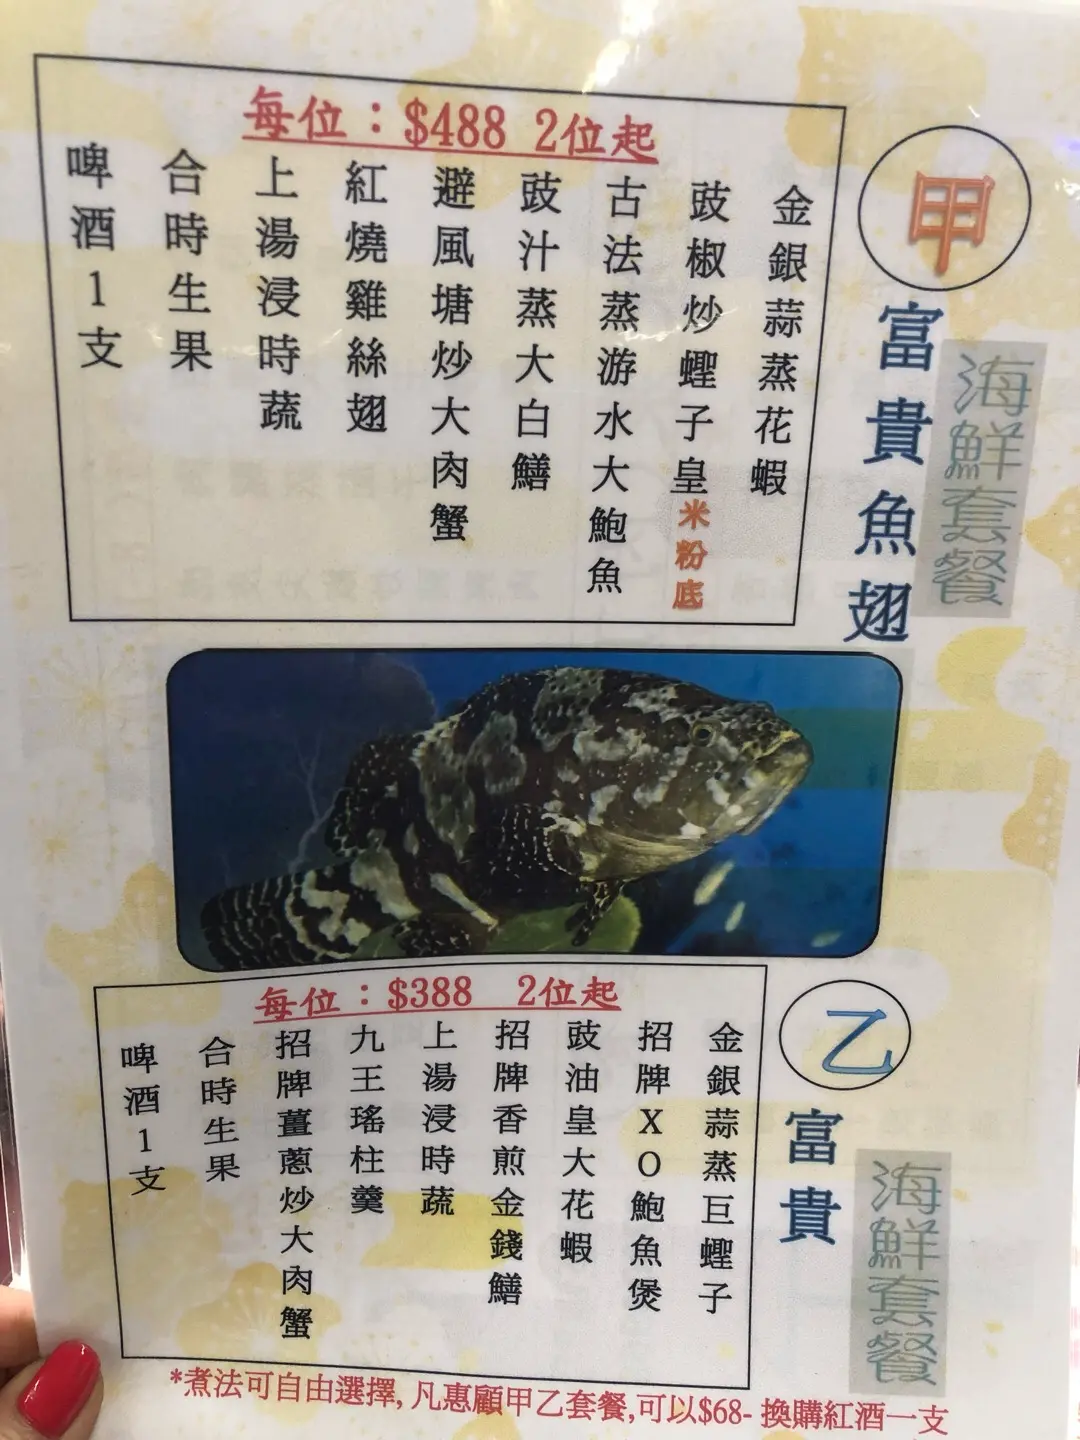 甲
富貴魚翅
海鮮套餐
每位：$488 2位起
金銀蒜蒸花蝦
豉椒炒蟶子皇米粉底
古法蒸游水大鮑魚
豉汁蒸大白鱔
避風塘炒大肉蟹
紅燒雞絲翅
上湯浸時蔬
合時生果
啤酒1支
乙
富貴
海鮮套餐
每位：$388 2位起
金銀蒜蒸巨蟶子
招牌XO鮑魚煲
豉油皇大花蝦
招牌香煎金錢鱔
上湯浸時蔬
九王瑤柱羹
招牌薑蔥炒大肉蟹
合時生果
啤酒1支
*煮法可自由選擇, 凡惠顧甲乙套餐,可以$68- 換購紅酒一支